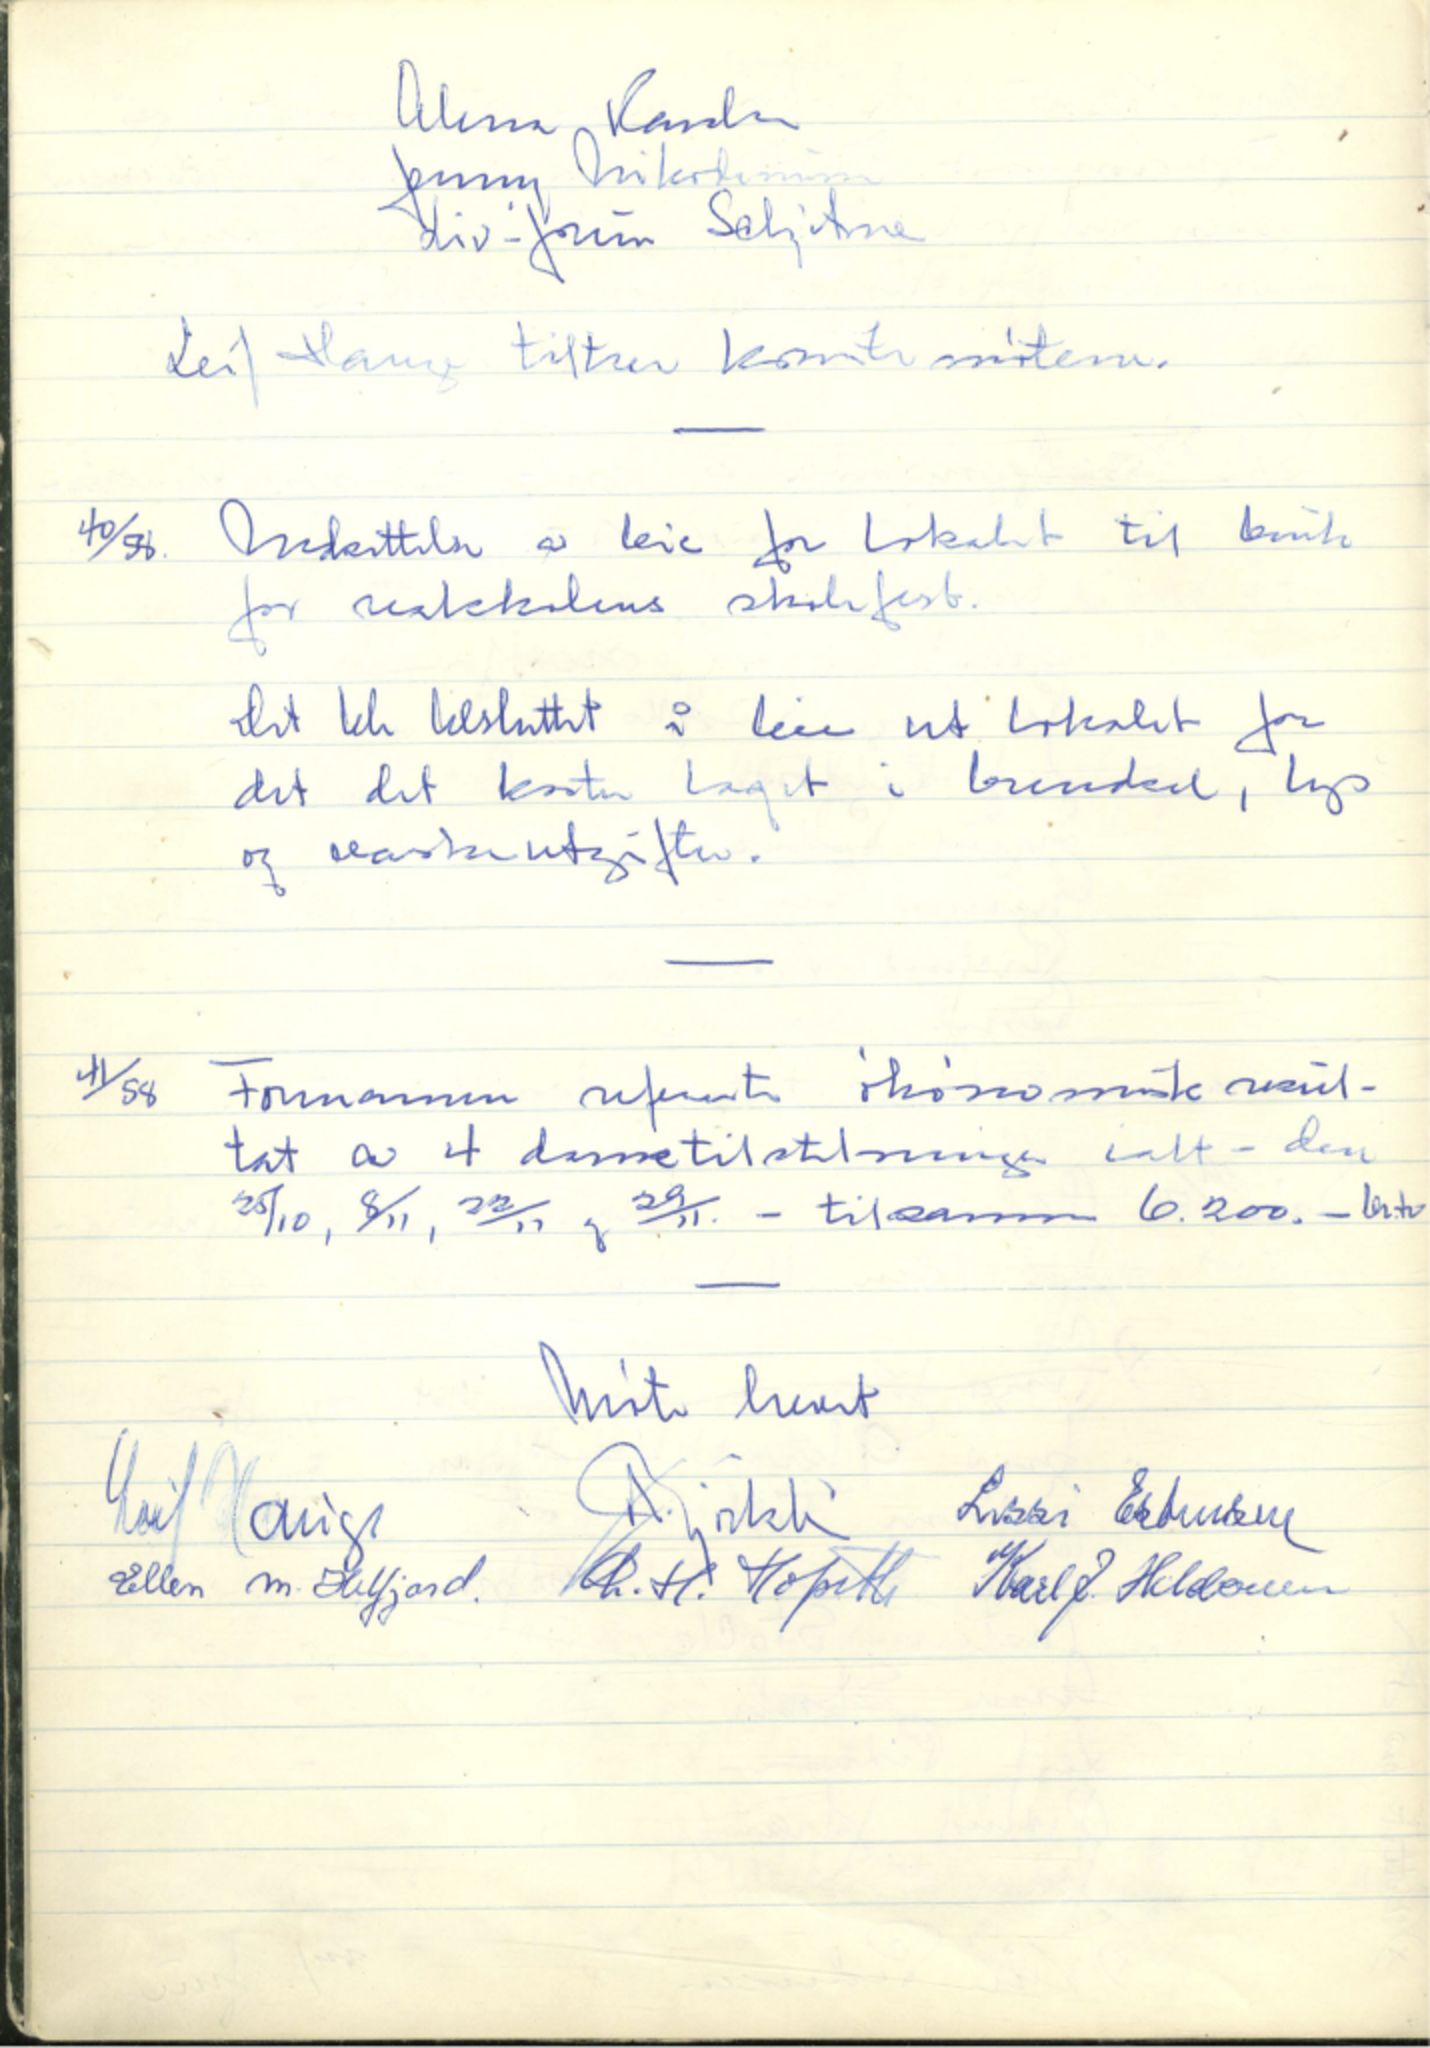 Jenny Nikodemussen
Liv-Jorun Seljetne
Leif Hauge tiltrer komitemötene.
40/58. Nedsettelse av leie for lokalet til bruk
for realskolens skolefest.
Det ble besluttet å leie ut lokalet for
det det koster laget i brendsel, lys
og vaskeutgifter.
41/58 Formannen refererte ökönomisk resul-
tat av 4 dansetilstelninger ialt - den
25/10, 8/11, 22/11 og 29/11. - tilsammen 6.200.- brutto
Möte hevet
Leif Hauge Lissi Estensen
Ellen M. Helfjord. Karl J. Hildonen